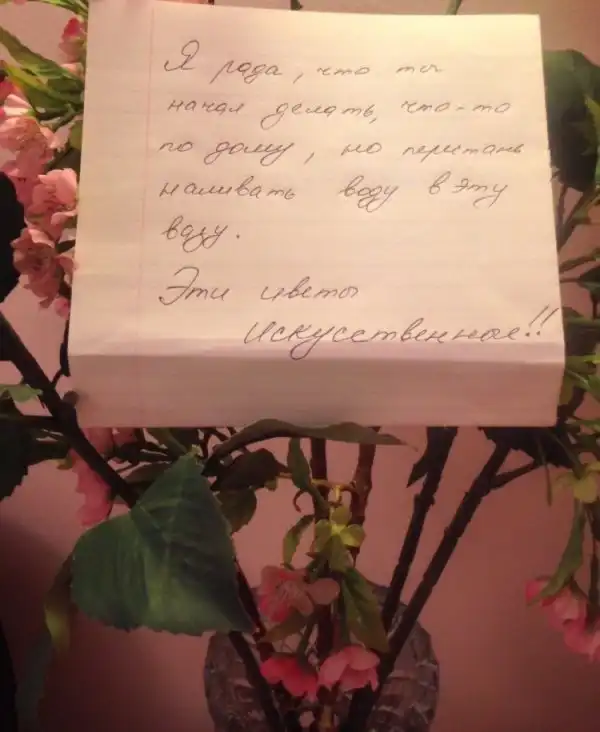 Я рада, что ты
начал делать, что-то
по дому, но перестань
наливать воду в эту
вазу.
Эти цветы
искусственное!!